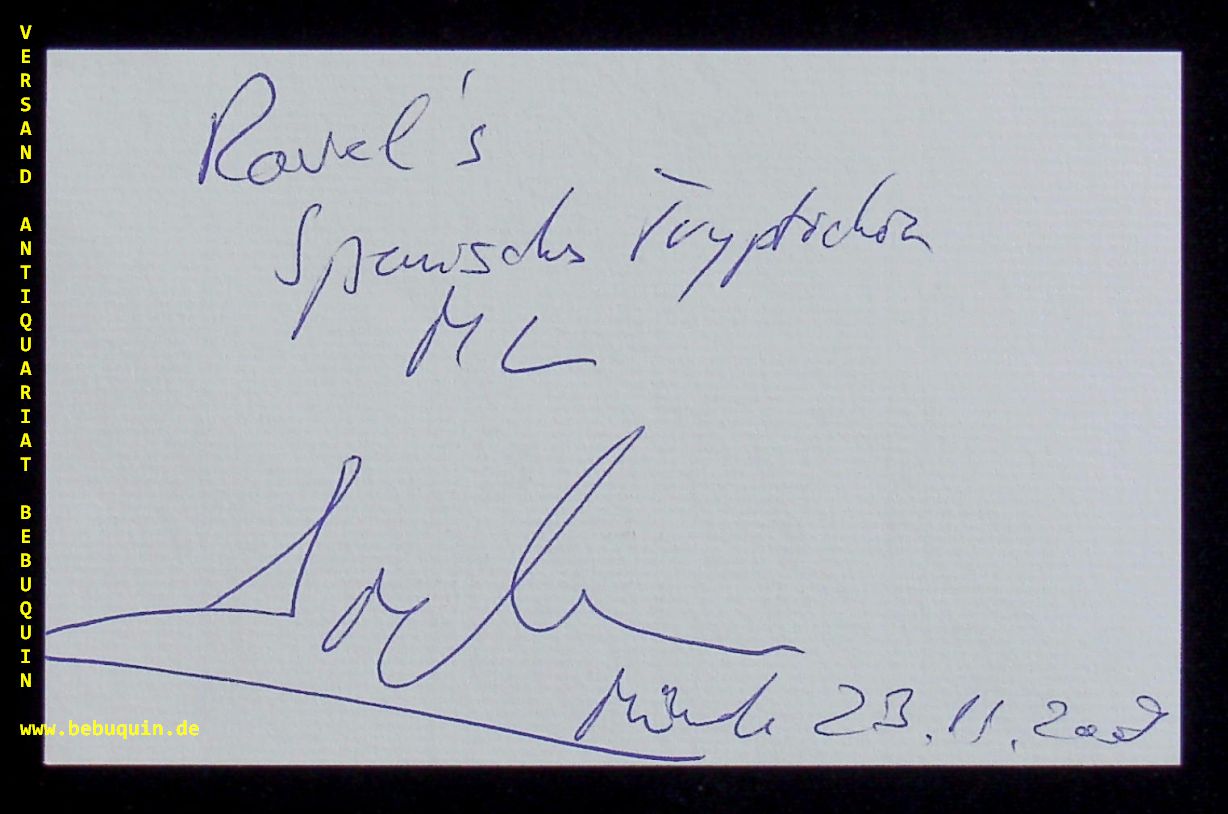 VERSAND ANTIQUARIAT BEBUQUIN
Ravel's
Spanisches Tryptichon
ML
23.11.2009
www.bebuquin.de